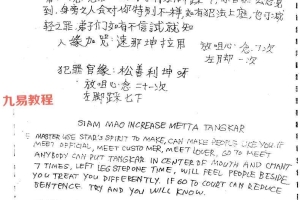 到,身旁之人会对你特别不样,如有犯法上庭,也可减
轻之罪,弟子们如有不信試就知
人缘加咒:速那坤拉用
放咀心念:七次
左脚一次
犯罪官缘:松喜利坤呀
放咀心念:二十一次
左脚踩七下
九易教程
SIAM MAO INCREASE METTA TANGKAR
MASTER USE STAR'S SPIRIT TO MAKE, CAN MAKE PEOPLE LIKE YOU IF
MEET OFFICIAL, MEET CUSTOMER, MEET LOVER, GO TO MEET
ANYBODY CAN PUT TANGKAR IN CENTER OF MOUTH AND CHANT
7 TIMES, LEFT LEG STEP ONE TIME, WILL FEEL PEOPLE BESIDE
YOU TREAT YOU DIFFERENTLY. IF GO TO COURT CAN REDUCE
SENTENCE TRY AND YOU WILL KNOW.